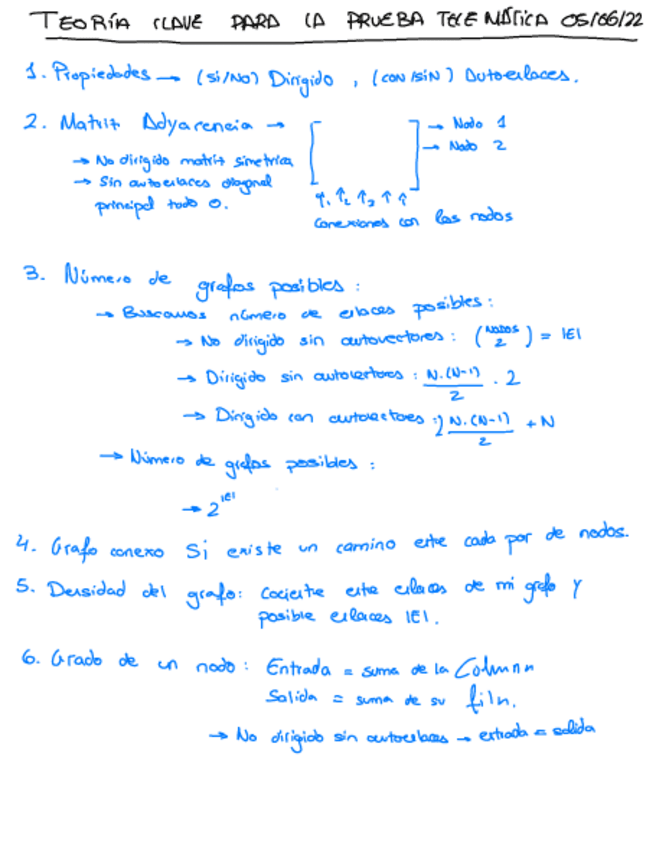 TEORÍA CLAVE PARA LA PRUEBA TELEMÁTICA 05/06/22
1. Propiedades → (Si/No) Dirigido, (CON/SIN) Autoenlaces.
2. Matriz Adyacencia → [ ] → Nodo 1
→ Nodo 2
→ No dirigido matriz simetrica
→ Sin autoenlaces diagonal
principal todo 0.
↑1 ↑2 ↑3 ↑ ↑
Conexiones con los nodos
3. Número de grafos posibles:
→ Buscamos número de enlaces posibles:
→ No dirigido sin autovectores: (NODOS 2) = |E|
→ Dirigido sin autovectores: N·(N-1)/2 · 2
→ Dirigido con autovectores: 2 N·(N-1)/2 + N
→ Número de grafos posibles:
→ 2^|E|
4. Grafo conexo Si existe un camino entre cada par de nodos.
5. Densidad del grafo: Cociente entre enlaces de mi grafo y
posible enlaces |E|.
6. Grado de un nodo: Entrada = suma de la Columna
Salida = suma de su fila.
→ No dirigido sin autoenlaces → entrada = salida